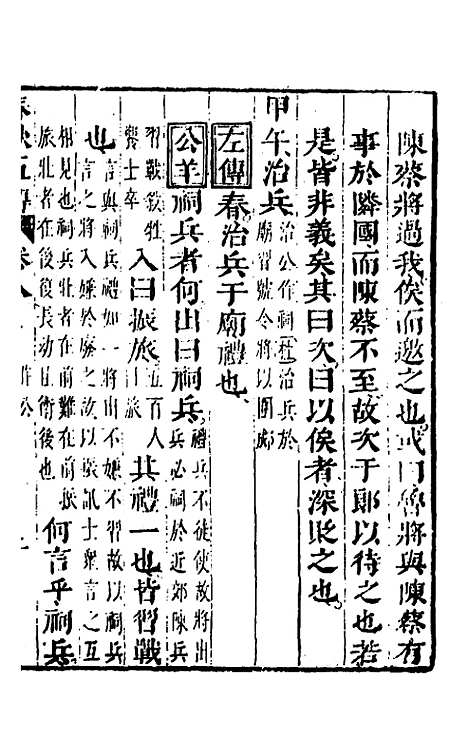 陳蔡將過我俟而邀之也或曰魯將與陳蔡有
事於隣國而陳蔡不至故次于郎以待之也若
是皆非義矣其曰次曰以俟者深貶之也
甲午治兵治公作祠杜治兵於廟習號令將以圍郕
左傳春治兵于廟禮也
公羊祠兵者何出曰祠兵禮兵不徒使故將出兵必祠於近郊陳兵
習戰殺牲饗士卒入曰振旅五百人曰旅其禮一也皆習戰
也言與祠兵禮如一將出不嫌不習故以祠兵言之將入嫌於廢之故以振訊士衆言之互
相見也祠兵壯者在前難在前振旅壯者在後復長幼且衛後也何言乎祠兵